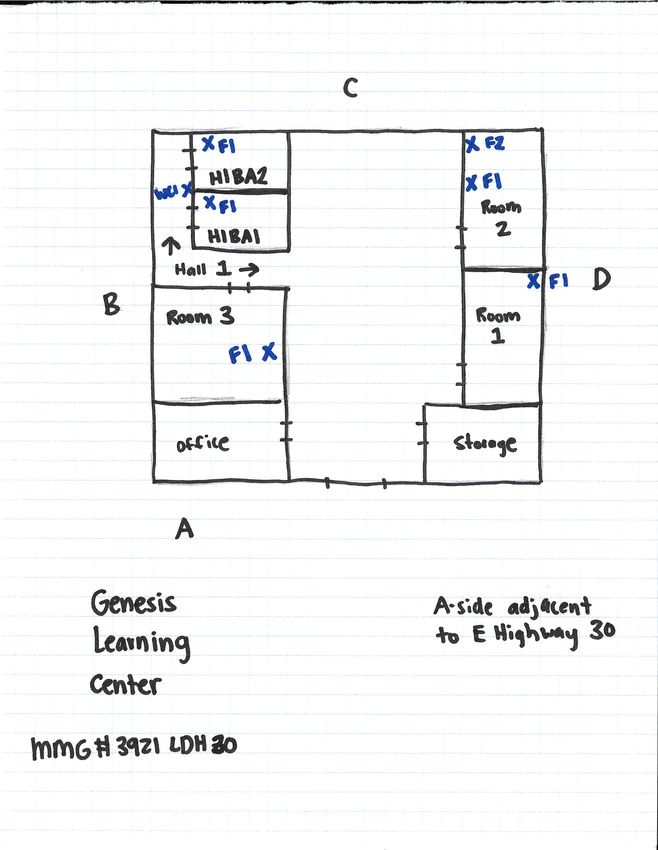 C
X F1
HIBA2
WC1 X
X F1
HIBA1
Hall 1 →
X F2
X F1
Room
2
X F1
D
B
Room 3
F1 X
Room
1
Office
Storage
A
Genesis
Learning
Center
A-side adjacent
to E Highway 30
MMG # 3921 LDH 30